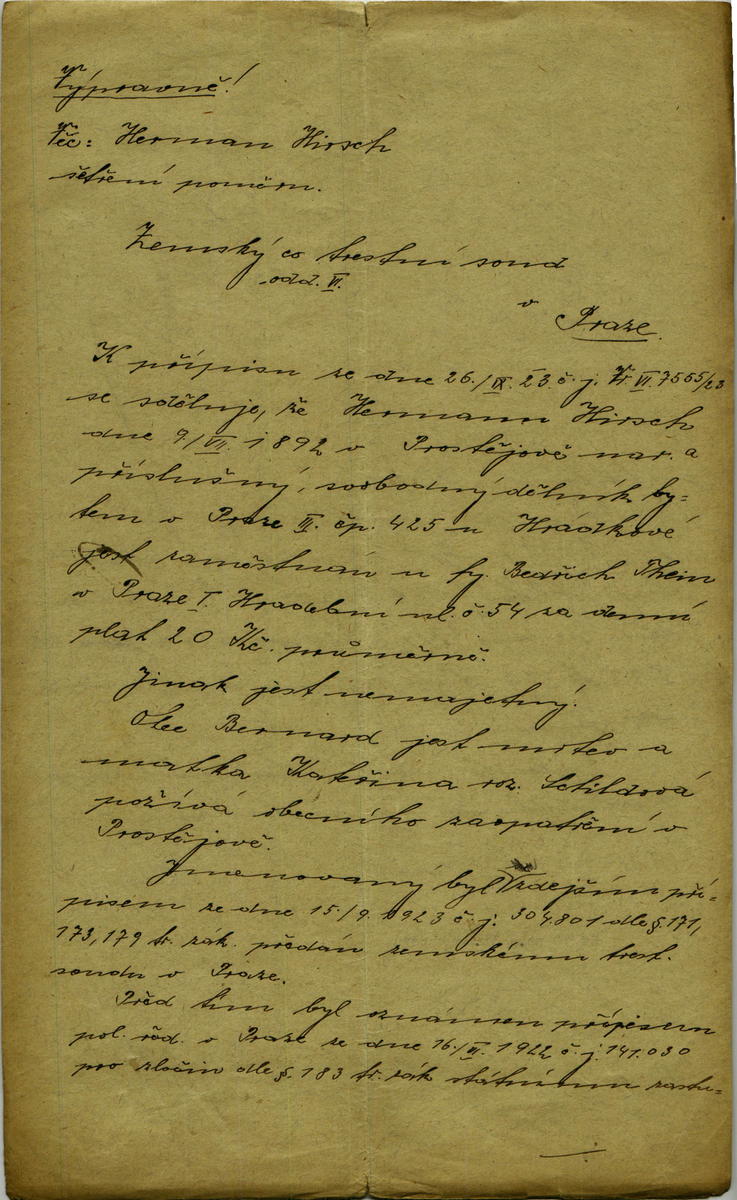 Výpravně!
Věc: Herman Hirsch
šetření poměrů.
Zemský co trestní soud
odd. VI.
v
Praze.
K přípisu ze dne 26./IX. 23. č. j. Tr. VI. 7565/23
se sděluje, že Hermann Hirsch
dne 9./VII. 1892 v Prostějově nar. a
příslušný, svobodný dělník by-
tem v Praze III. čp. 425 u Hrádkové
jest zaměstnán u fy. Bedřich Thein
v Praze I. Hradební ul. č. 54 za denní
plat 20 Kč. průměrně.
Jinak jest nemajetný.
Otec Bernard jest mrtev a
matka Kateřina roz. Schildová
požívá obecního zaopatření v
Prostějově.
Jmenovaný byl zdejším pří-
pisem ze dne 15./9. 1923 č. j. 304.801 dle §. 171,
173, 179 tr. zák. předán zemskému trest.
soudu v Praze.
Před tím byl oznámen přípisem
pol. řed. v Praze ze dne 16./VI. 1922 č. j. 141.030
pro zločin dle §. 183 tr. zák státnímu zastu-